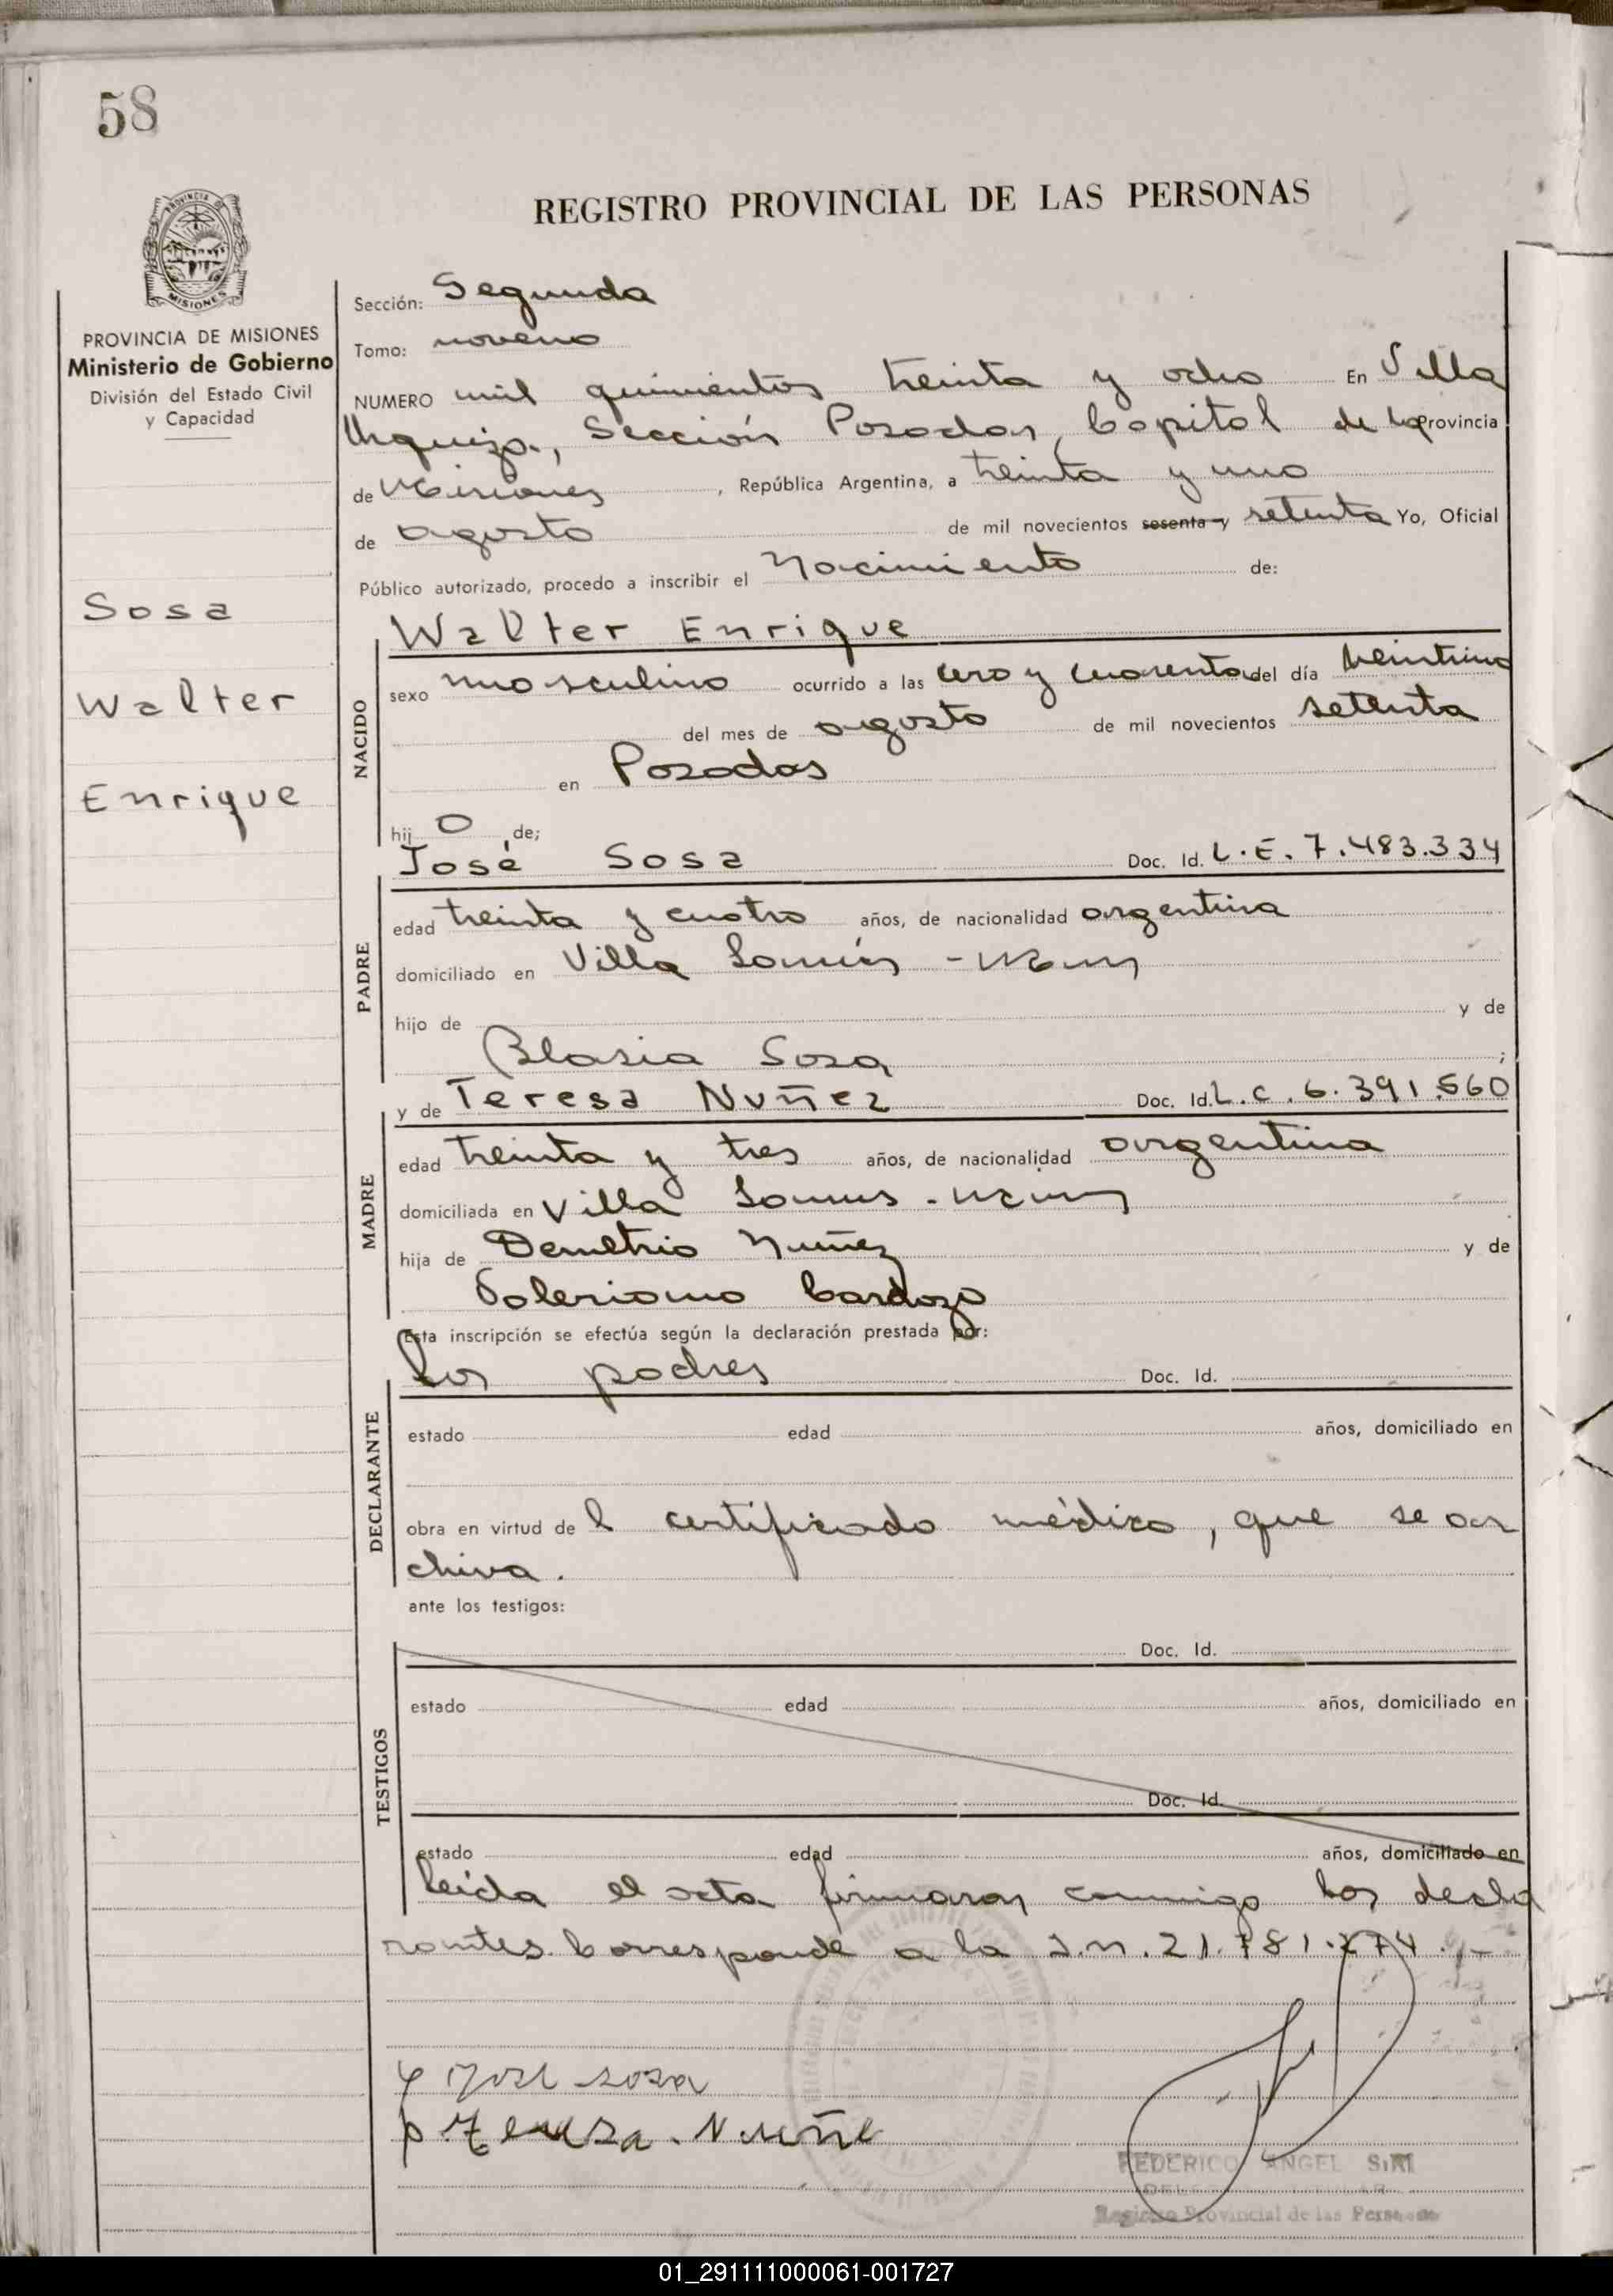 58
REGISTRO PROVINCIAL DE LAS PERSONAS
MISIONES
PROVINCIA DE MISIONES
Ministerio de Gobierno
División del Estado Civil
y Capacidad
Sosa
Walter
Enrique
Sección: Segunda
Tomo: noveno
NUMERO mil quinientos treinta y ocho En Villa
Urquiza, Sección Posadas, Capital de la Provincia
de Misiones, República Argentina, a treinta y uno
de agosto de mil novecientos sesenta y setenta Yo, Oficial
Público autorizado, procedo a inscribir el Nacimiento de:
Walter Enrique
NACIDO
sexo masculino ocurrido a las cero y cuarenta del día
del mes de agosto de mil novecientos setenta
en Posadas
hij o de;
José Sosa Doc. Id. L.E. 7.483.334
PADRE
edad treinta y cuatro años, de nacionalidad argentina
domiciliado en Villa
hijo de y de
Blasia Sosa ;
y de Teresa Nuñez Doc. Id. L.C. 6.391.560
MADRE
edad treinta y tres años, de nacionalidad argentina
domiciliada en Villa
hija de Demetrio Nuñez y de
Cardozo
Esta inscripción se efectúa según la declaración prestada por:
los padres Doc. Id.
DECLARANTE
estado edad años, domiciliado en
obra en virtud de l certificado médico, que se ar
chiva.
ante los testigos:
Doc. Id.
TESTIGOS
estado edad años, domiciliado en
Doc. Id.
estado edad años, domiciliado en
Leida el acta firmaron conmigo los decla
rantes. Corresponde a la
José Sosa
Teresa. Nuñe
FEDERICO ANGEL SIRI
Registro Provincial de las Personas
01_291111000061-001727